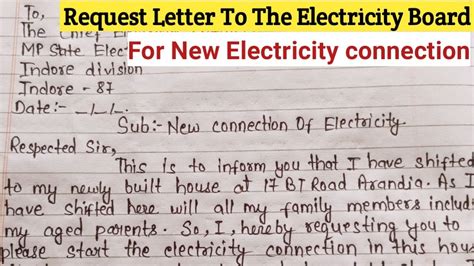 Request Letter To The Electricity Board
To,
The Chief E
For New Electricity connection
MP State Elec
Indore division
Indore - 87
Date:- _/_/_.
Sub:- New connection Of Electricity
Respected Sir,
This is to inform you that I have shifted
to my newly built house at 17 BT Road Arandia. As I
have shifted here will all my family members includi
my aged parents. So, I, hereby requesting you to
please start the electricity connection in this hou